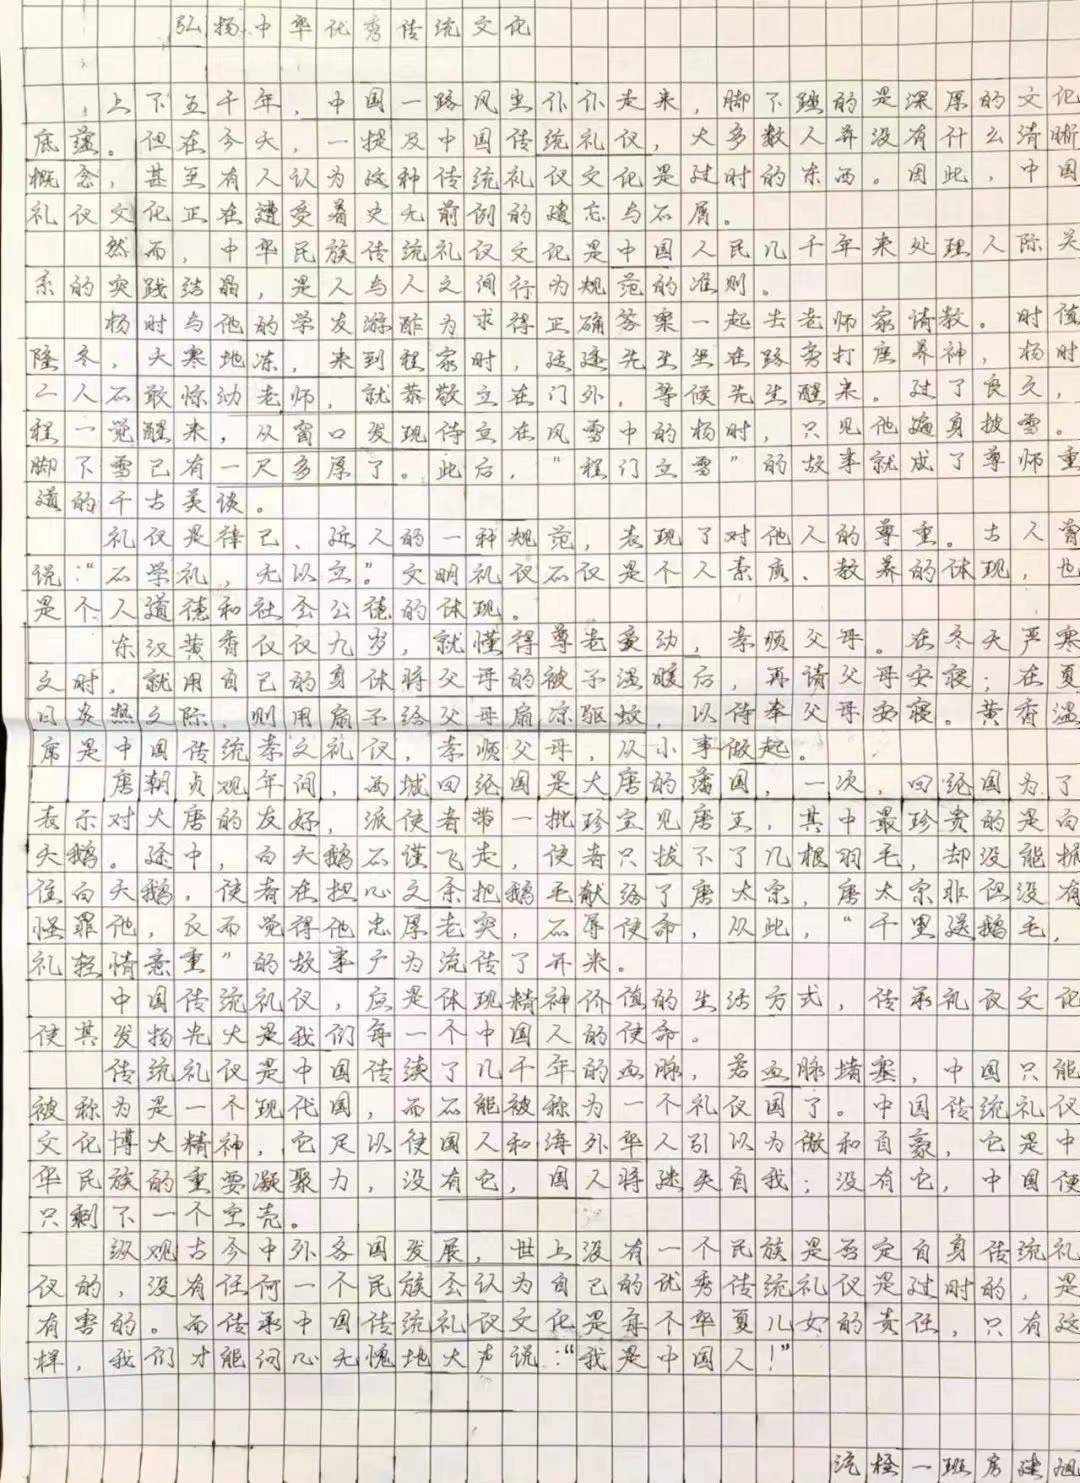 弘扬中华优秀传统文化
上下五千年，中国一路风尘仆仆走来，脚下踏的是深厚的文化
底蕴。但在今天，一提及中国传统礼仪，大多数人并没有什么清晰
概念，甚至有人认为这种传统礼仪文化是过时的东西。因此，中国
礼仪文化正在遭受着史无前例的遗忘与不屑。
然而，中华民族传统礼仪文化是中国人民几千年来处理人际关
系的实践结晶，是人与人之间行为规范的准则。
杨时与他的学友游酢为求得正确答案一起去老师家请教。时值
隆冬，天寒地冻，来到程家时，适逢先生坐在路旁打座养神，杨时
二人不敢惊动老师，就恭敬立在门外，等候先生醒来。过了良久，
程一觉醒来，从窗口发现侍立在风雪中的杨时，只见他遍身披雪。
脚下雪已有一尺多厚了。此后，“程门立雪”的故事就成了尊师重
道的千古美谈。
礼仪是律己、近人的一种规范，表现了对他人的尊重。古人曾
说：“不学礼，无以立。”文明礼仪不仅是个人素质、教养的体现，也
是个人道德和社会公德的体现。
东汉黄香仅仅九岁，就懂得尊老爱幼，孝顺父母。在冬天严寒
之时，就用自己的身体将父母的被子温暖后，再请父母安寝；在夏
日炎热之际，则用扇子给父母扇凉驱蚊，以侍奉父母安寝。黄香温
席是中国传统孝文礼仪，孝顺父母，从小事做起。
唐朝贞观年间，西城回纶国是大唐的藩国，一次，回纶国为了
表示对大唐的友好，派使者带一批珍宝见唐王，其中最珍贵的是白
天鹅。途中，白天鹅不谨飞走，使者只拔下了几根羽毛，却没能抓
住白天鹅，使者在担心之余把鹅毛献给了唐太宗，唐太宗非但没有
怪罪他，反而觉得他忠厚老实，不辱使命，从此，“千里送鹅毛，
礼轻情意重”的故事广为流传了开来。
中国传统礼仪，应是体现精神价值的生活方式，传承礼仪文化
使其发扬光大是我们每一个中国人的使命。
传统礼仪是中国传续了几千年的血脉，若血脉堵塞，中国只能
被称为是一个现代国，而不能被称为一个礼仪国了。中国传统礼仪
文化博大精神，它足以使国人和海外华人引以为傲和自豪，它是中
华民族的重要凝聚力，没有它，国人将迷失自我；没有它，中国便
只剩下一个空壳。
纵观古今中外各国发展，世上没有一个民族是否定自身传统礼
仪的，没有任何一个民族会认为自己的优秀传统礼仪是过时的，是
有害的。而传承中国传统礼仪文化是每个华夏儿女的责任，只有这
样，我们才能问心无愧地大声说：“我是中国人！”
流桥一班房建旭